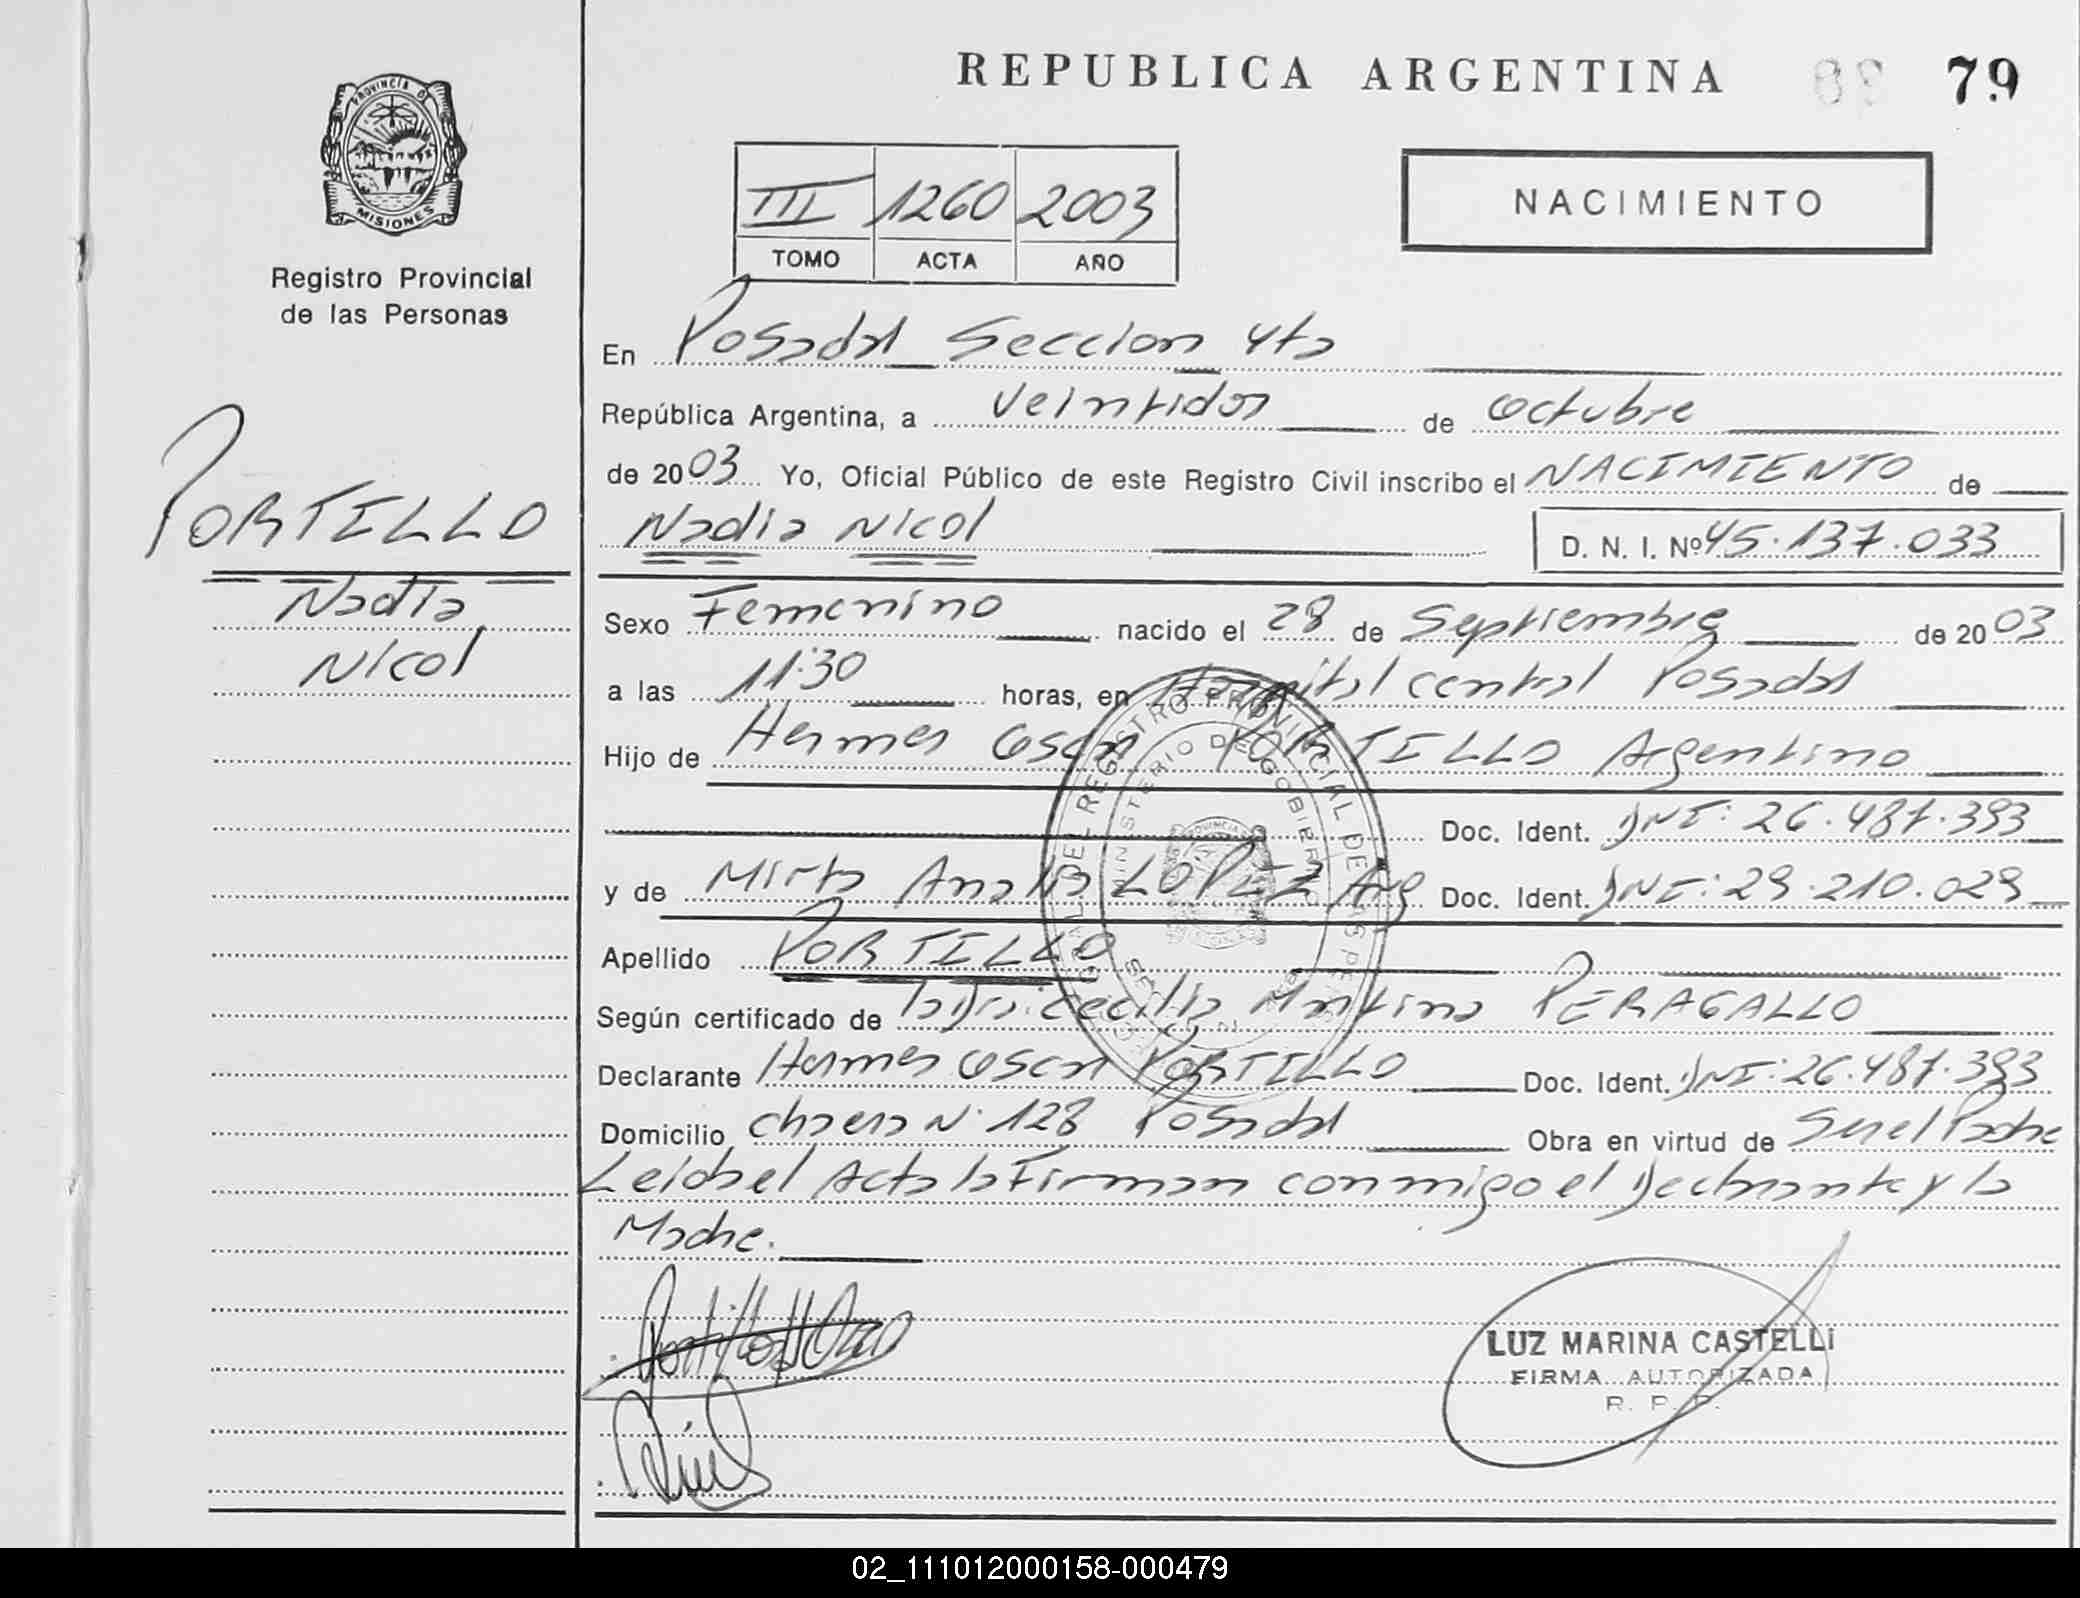 REPUBLICA ARGENTINA 79
PROVINCIA DE
MISIONES
Registro Provincial
de las Personas
III 1260 2003
TOMO ACTA AÑO
NACIMIENTO
En Posadas Seccion 4ta
República Argentina, a Veintidos de Octubre
de 2003 Yo, Oficial Público de este Registro Civil inscribo el NACIMIENTO de
Nadia Nicol D. N. I. Nº 45.137.033
PORTILLO
Nadia
Nicol
Sexo Femenino nacido el 28 de Septiembre de 2003
a las 11:30 horas, en Hospital central Posadas
Hijo de Hermes Oscar PORTILLO Argentino
Doc. Ident. DNI: 26.487.393
y de Mirta Analia LOPEZ Arg Doc. Ident. DNI: 29.210.029
Apellido PORTILLO
Según certificado de la Dra. Cecilia Martina PERAGALLO
Declarante Hermes Oscar PORTILLO Doc. Ident. DNI: 26.487.393
Domicilio chacra N. 128 Posadas Obra en virtud de Ser el Padre
Leida el Acta la Firman conmigo el Declarante y la
Madre.
LUZ MARINA CASTELLI
FIRMA AUTORIZADA
R. P. P.
02_111012000158-000479